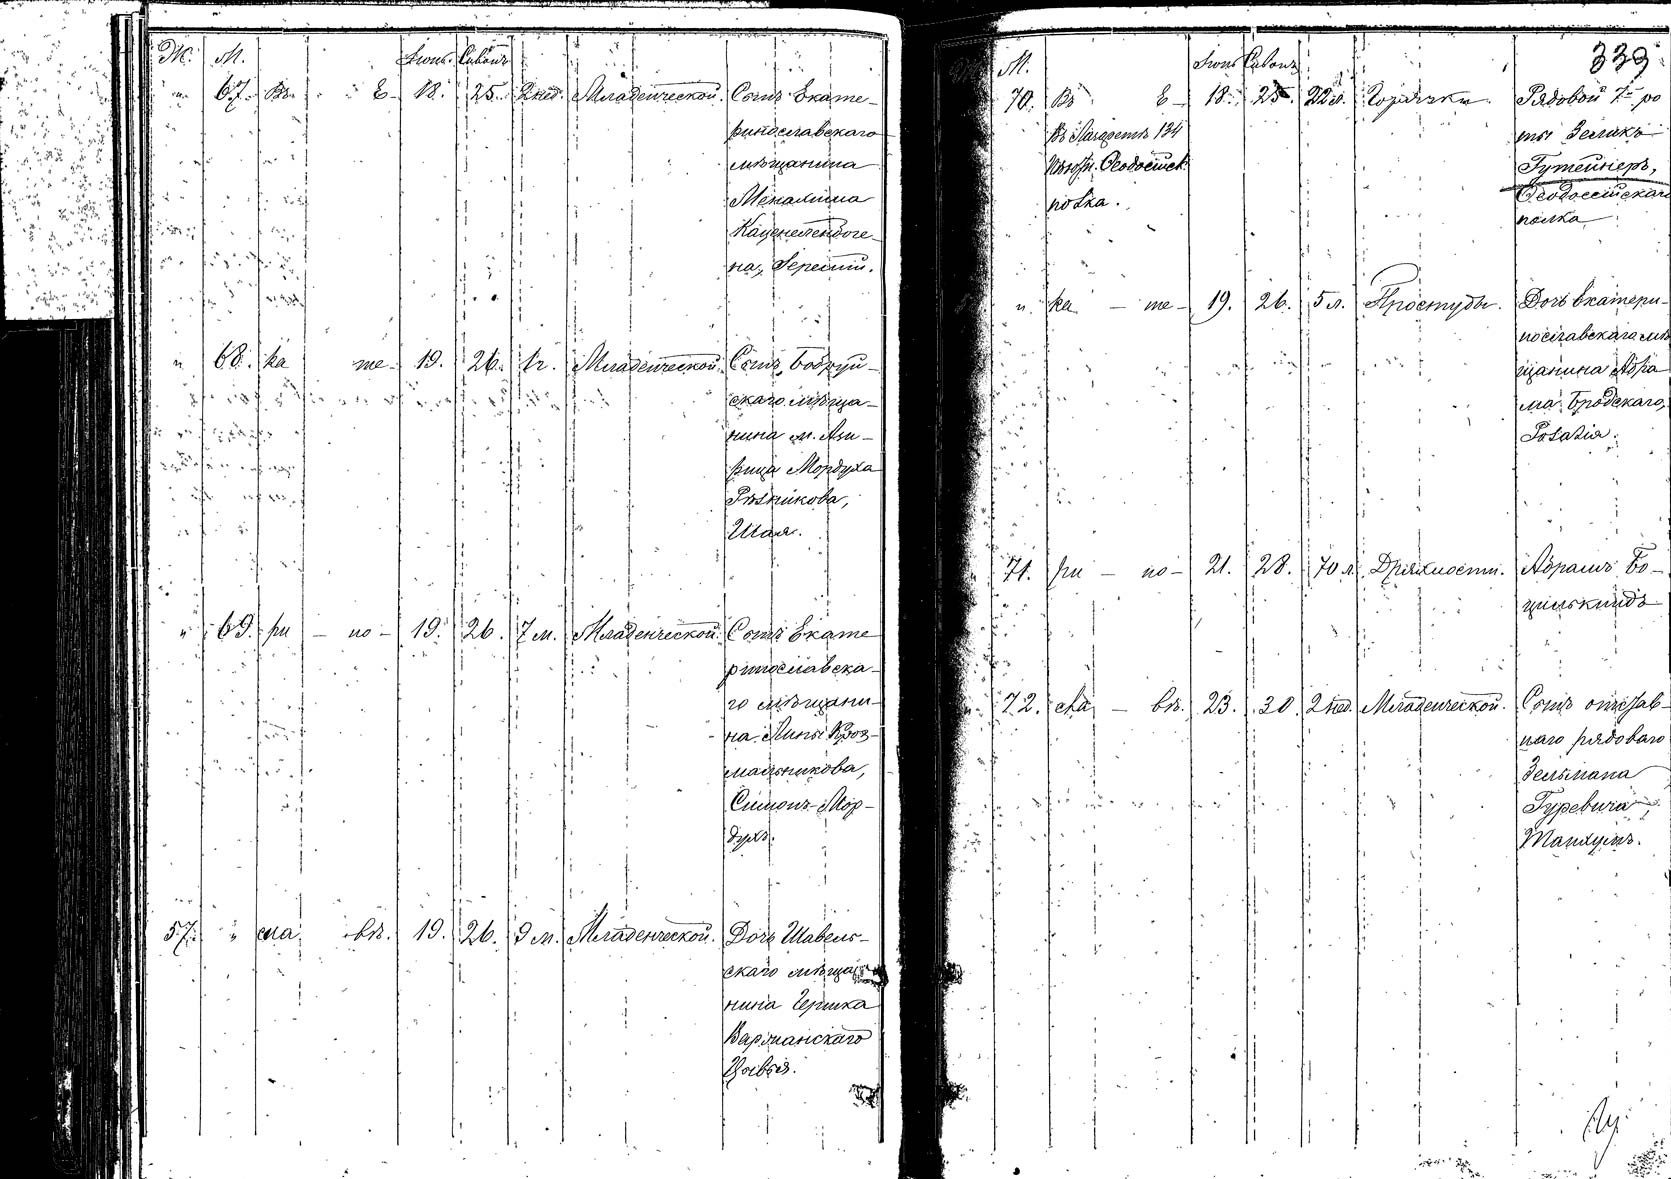 Ж. М. Іюнь. Сивонъ
" 67. Въ Е- 18. 25. 2 нед. Младенческой. Сынъ Екате-
ринославскаго
мѣщанина
Менахима
Каценеленбоге-
на,
" 68. ка те- 19. 26. 1 г. Младенческой. Сынъ Бобруй-
скаго мѣща-
нина м.
Мордуха
Рѣзникова,
Шая.
" 69. ри - но- 19. 26. 7 м. Младенческой. Сынъ Екате
ринославска-
го мѣщани-
на
мальникова,
Симонъ-Мор-
духъ.
57. " сла - вѣ. 19. 26. 9 м. Младенческой. Дочь Шавель-
скаго мѣща
нина Гершка
Варшанскаго
Цывья.
339
М. Іюнь Сивонъ
70. Въ Е- 18. 25. 22 л. Горячки. Рядовой 7й ро
Въ Лазаретѣ 134 ты Зеликъ
Пѣхотн. Ѳеодосійск. Гутейнеръ,
полка. Ѳеодоссійскаго
полка
" ка - те- 19. 26. 5 л. Простуды. Дочь Екатери-
нославскаго мѣ
щанина Абра-
ма Бродскаго,
71. ри - но- 21. 28. 70 л. Дряхлости. Абрамъ Бо-
цилькиндъ
72. сла - вѣ. 23. 30. 2 нед. Младенческой. Сынъ отстав-
наго рядоваго
Зельмана
Гуревича,
Танхумъ.